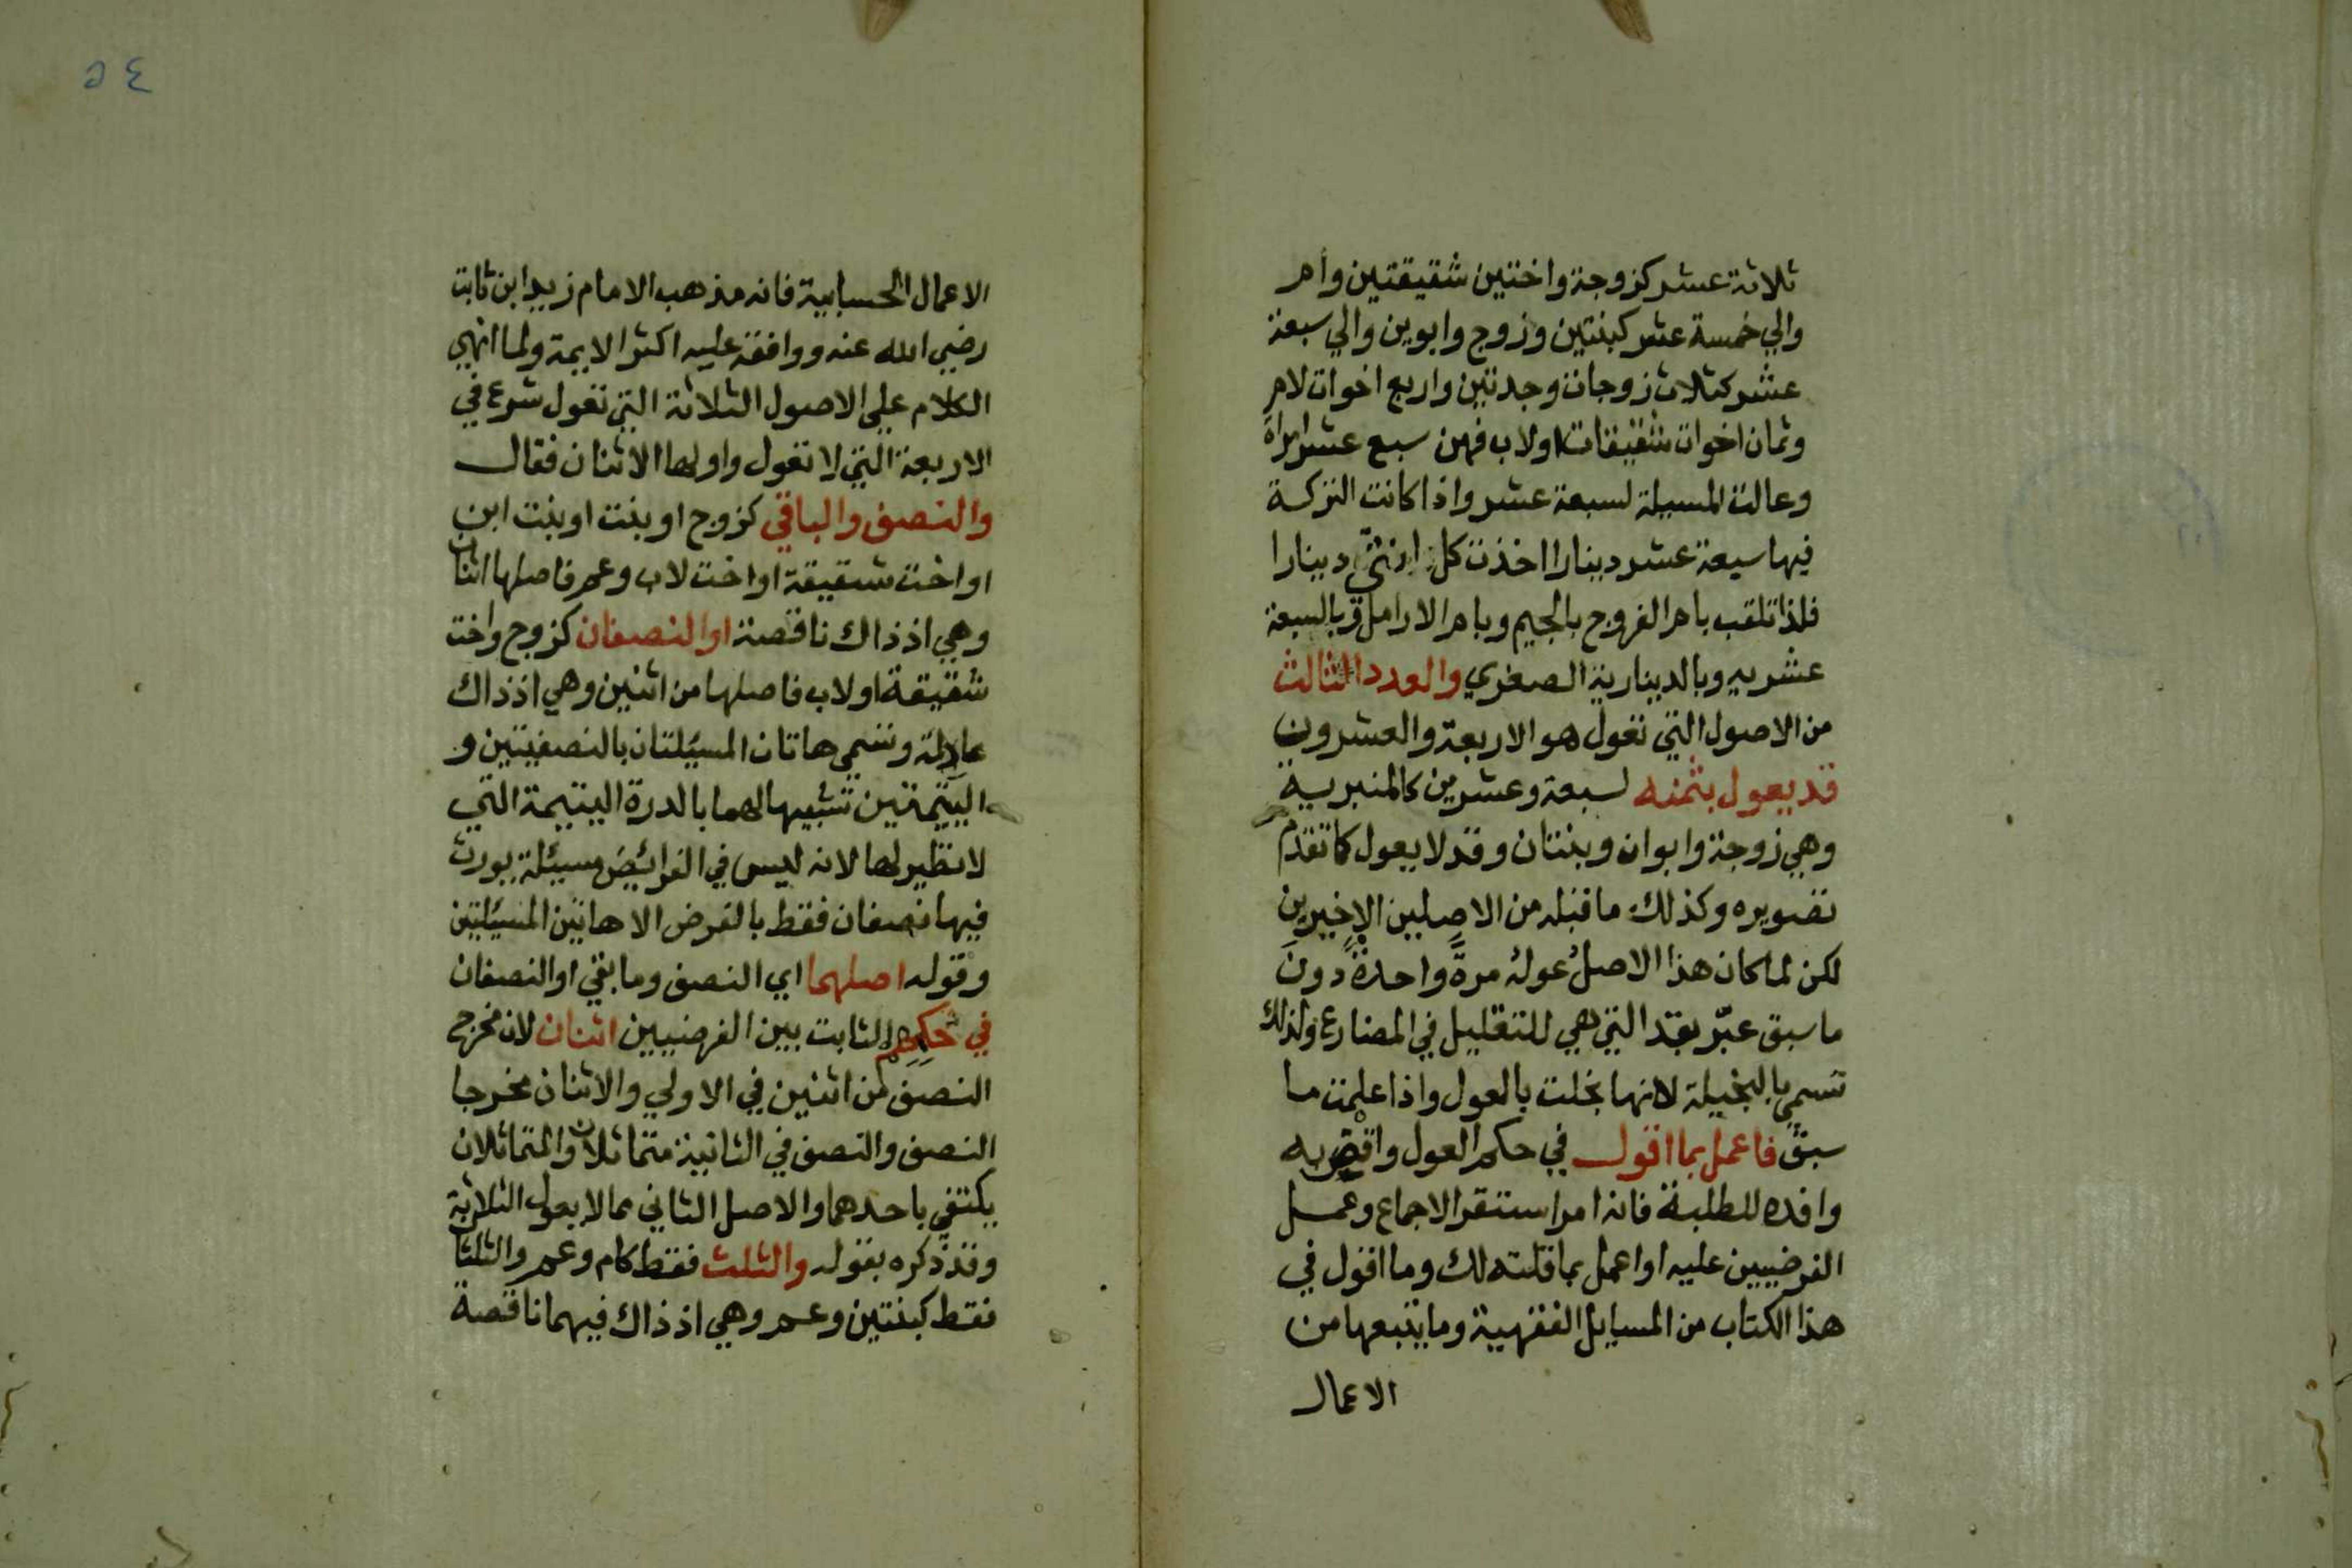 ثلاثة عشر كزوجة واختين شقيقتين وام
والي خمسة عشر كبنتين وزوج وابوين والي سبعة
عشر كثلاث زوجات وجدتين واربع اخوات لام
وثمان اخوات شقيقات اولاب فهن سبع عشر امراة
وعالت المسيلة لسبعة عشر واذا كانت التركة
فيها سبعة عشر دينارا اخذت كل انثي دينارا
فلذا تلقب بام الفروج بالجيم وبام الارامل وبالسبعة
عشريه وبالدينارية الصغري والعدد الثالث
من الاصول التي تعول هو الاربعة والعشرون
قد يعول بثمنه لسبعة وعشرين كالمنبرية
وهي زوجة وابوان وبنتان وقد لا يعول كما تقدم
تصويره وكذلك ما قبله من الاصلين الاخيرين
لكن لما كان هذا الاصل عوله مرةً واحدةً دون
ما سبق عبّر بقد التي هي للتقليل في المضارع ولذلك
تسمي بالبخيلة لانها بخلت بالعول واذا علمت ما
سبق فاعمل بما اقول في حكم العول واقض به
وافده للطلبة فانه امر استقر الاجماع وعمل
الفرضيين عليه او اعمل بما قلته لك وما اقول في
هذا الكتاب من المسايل الفقهية وما يتبعها من
الاعمال
٥٤
الاعمال الحسابية فانه مذهب الامام زيد ابن ثابت
رضي الله عنه ووافقه عليه اكثر الايمة ولما انهي
الكلام علي الاصول الثلاثة التي تعول شرع في
الاربعة التي لا تعول واولها الاثنان فقال
والنصف والباقي كزوج او بنت او بنت ابن
او اخت شقيقة او اخت لاب وعم فاصلها اثنان
وهي اذ ذاك ناقصة او النصفان كزوج واخت
شقيقة اولاب فاصلها من اثنين وهي اذ ذاك
عادلة وتسمي هاتان المسيلتان بالنصفيتين و
اليتيمتين تشبيها لهما بالدرة اليتيمة التي
لا نظير لها لانه ليس في الفرائيض مسيئلة يورث
فيها نصفان فقط بالفرض الا هاتين المسيئلتين
وقوله اصلهما اي النصف وما بقي او النصفان
في حكمهم الثابت بين الفرضيين اثنان لان مخرج
النصف من اثنين في الاولي والاثنان مخرجا
النصف والنصف في الثانية متماثلان والمتماثلان
يكتفي باحدهما والاصل الثاني مما لا يعول الثلاثة
وقد ذكره بقوله والثلث فقط كام وعم والثلثان
فقط كبنتين وعم وهي اذ ذاك فيهما ناقصة